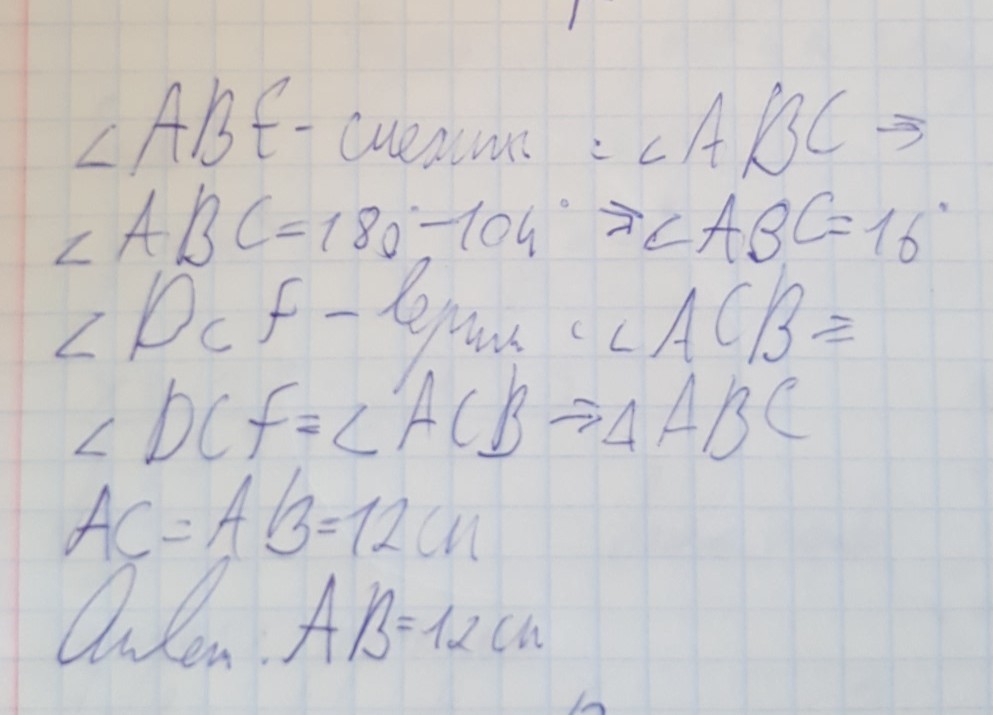 ∠ABE - смежн. с ∠ABC ⇒
∠ABC=180°-104° ⇒ ∠ABC=16°
∠DCF - верт. с ∠ACB ⇒
∠DCF=∠ACB ⇒ ΔABC
AC=AB=12см
Ответ: AB=12см